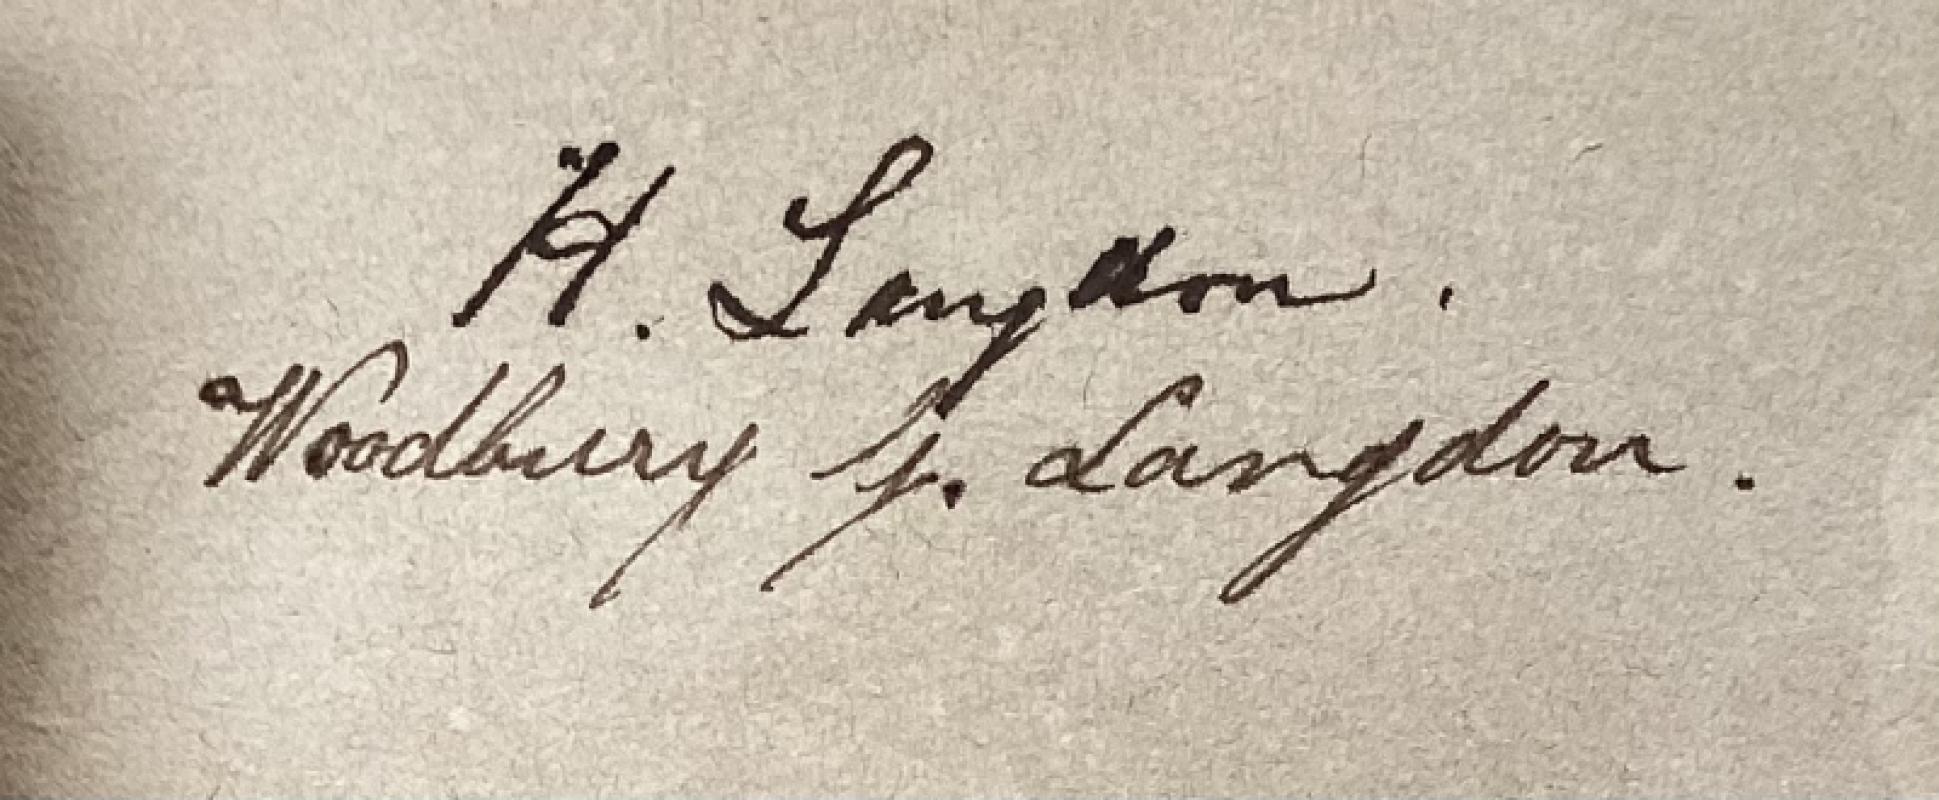 H. Langdon.
Woodbury G. Langdon.